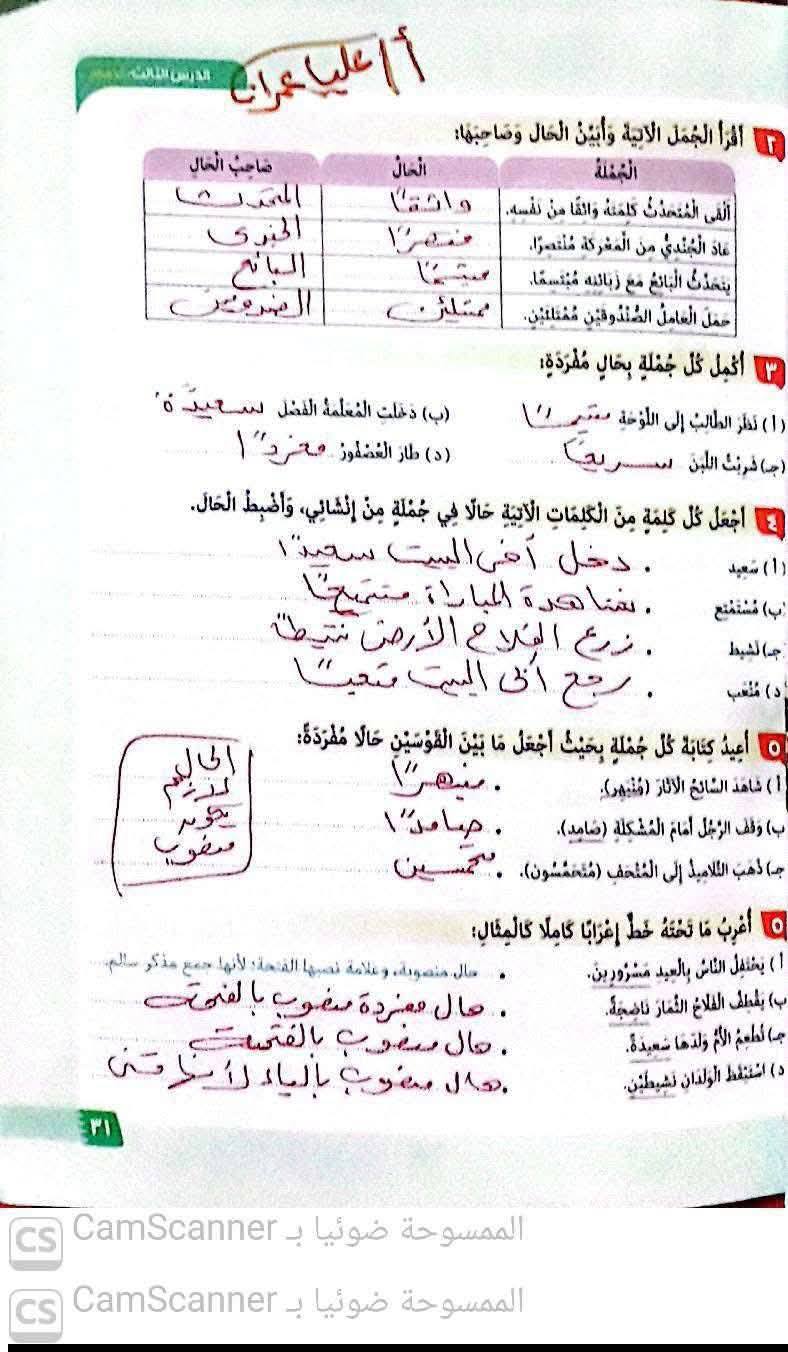 أ/ عليا عمران
الدرس الثالث
٢ أَقْرَأُ الْجُمَلَ الْآتِيَةَ وَأُبَيِّنُ الْحَالَ وَصَاحِبَهَا:
الْجُمْلَةُ الْحَالُ صَاحِبُ الْحَالِ
أَلْقَى الْمُتَحَدِّثُ كَلِمَتَهُ وَاثِقًا مِنْ نَفْسِهِ. واثقًا المتحدث
عَادَ الْجُنْدِيُّ مِنَ الْمَعْرَكَةِ مُنْتَصِرًا. الجندى
يَتَحَدَّثُ الْبَائِعُ مَعَ زَبَائِنِهِ مُبْتَسِمًا. مبتسمًا البائع
حَمَلَ الْعَامِلُ الصُّنْدُوقَيْنِ مُمْتَلِئَيْنِ. ممتلئين الصندوقين
٣ أُكْمِلُ كُلَّ جُمْلَةٍ بِحَالٍ مُفْرَدَةٍ:
(أ) نَظَرَ الطَّالِبُ إِلَى اللَّوْحَةِ (ب) دَخَلَتِ الْمُعَلِّمَةُ الْفَصْلَ سعيدةً
(جـ) شَرِبْتُ اللَّبَنَ سريعًا (د) طَارَ الْعُصْفُورُ مغردًا
٤ أَجْعَلُ كُلَّ كَلِمَةٍ مِنَ الْكَلِمَاتِ الْآتِيَةِ حَالًا فِي جُمْلَةٍ مِنْ إِنْشَائِي، وَأَضْبِطُ الْحَالَ.
(أ) سَعِيد . دخل أخى البيت سعيدًا
(ب) مُسْتَمْتِع . المباراة
(جـ) نَشِيط . زرع الفلاح الأرض نشيطًا
(د) مُتْعَب . رجع أبى البيت متعبًا
٥ أُعِيدُ كِتَابَةَ كُلِّ جُمْلَةٍ بِحَيْثُ أَجْعَلُ مَا بَيْنَ الْقَوْسَيْنِ حَالًا مُفْرَدَةً:
أ) شَاهَدَ السَّائِحُ الْآثَارَ (مُنْبَهِر). . منبهرًا
ب) وَقَفَ الرَّجُلُ أَمَامَ الْمُشْكِلَةِ (صَامِد). . صامدًا
جـ) ذَهَبَ التَّلَامِيذُ إِلَى الْمُتْحَفِ (مُتَحَمِّسُونَ). . متحمسين
الحال
لازم
يكون
منصوب
٥ أُعْرِبُ مَا تَحْتَهُ خَطٌّ إِعْرَابًا كَامِلًا كَالْمِثَالِ:
أ) يَحْتَفِلُ النَّاسُ بِالْعِيدِ مَسْرُورِينَ. . حال منصوبة، وعلامة نصبها الفتحة؛ لأنها جمع مذكر سالم.
ب) يَقْطِفُ الْفَلَّاحُ الثِّمَارَ نَاضِجَةً. . حال مفردة منصوب بالفتحة
جـ) تُطْعِمُ الْأُمُّ وَلَدَهَا سَعِيدَةً. . حال منصوب بالفتحة
د) اسْتَيْقَظَ الْوَلَدَانِ نَشِيطَيْنِ. . حال منصوب بالياء لأنها مثنى
٣١
الممسوحة ضوئيا بـ CamScanner
CS
الممسوحة ضوئيا بـ CamScanner
CS